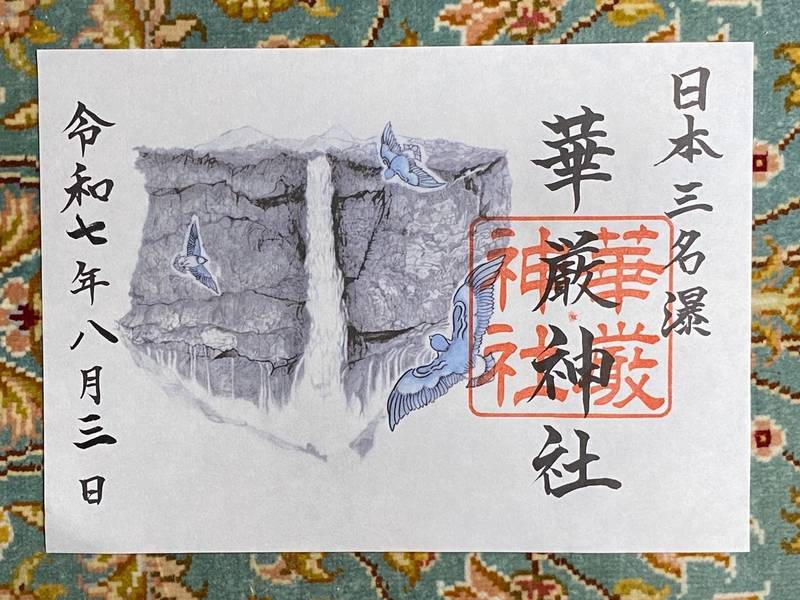 日本三名瀑
華厳神社
華厳
神社
令和七年八月三日